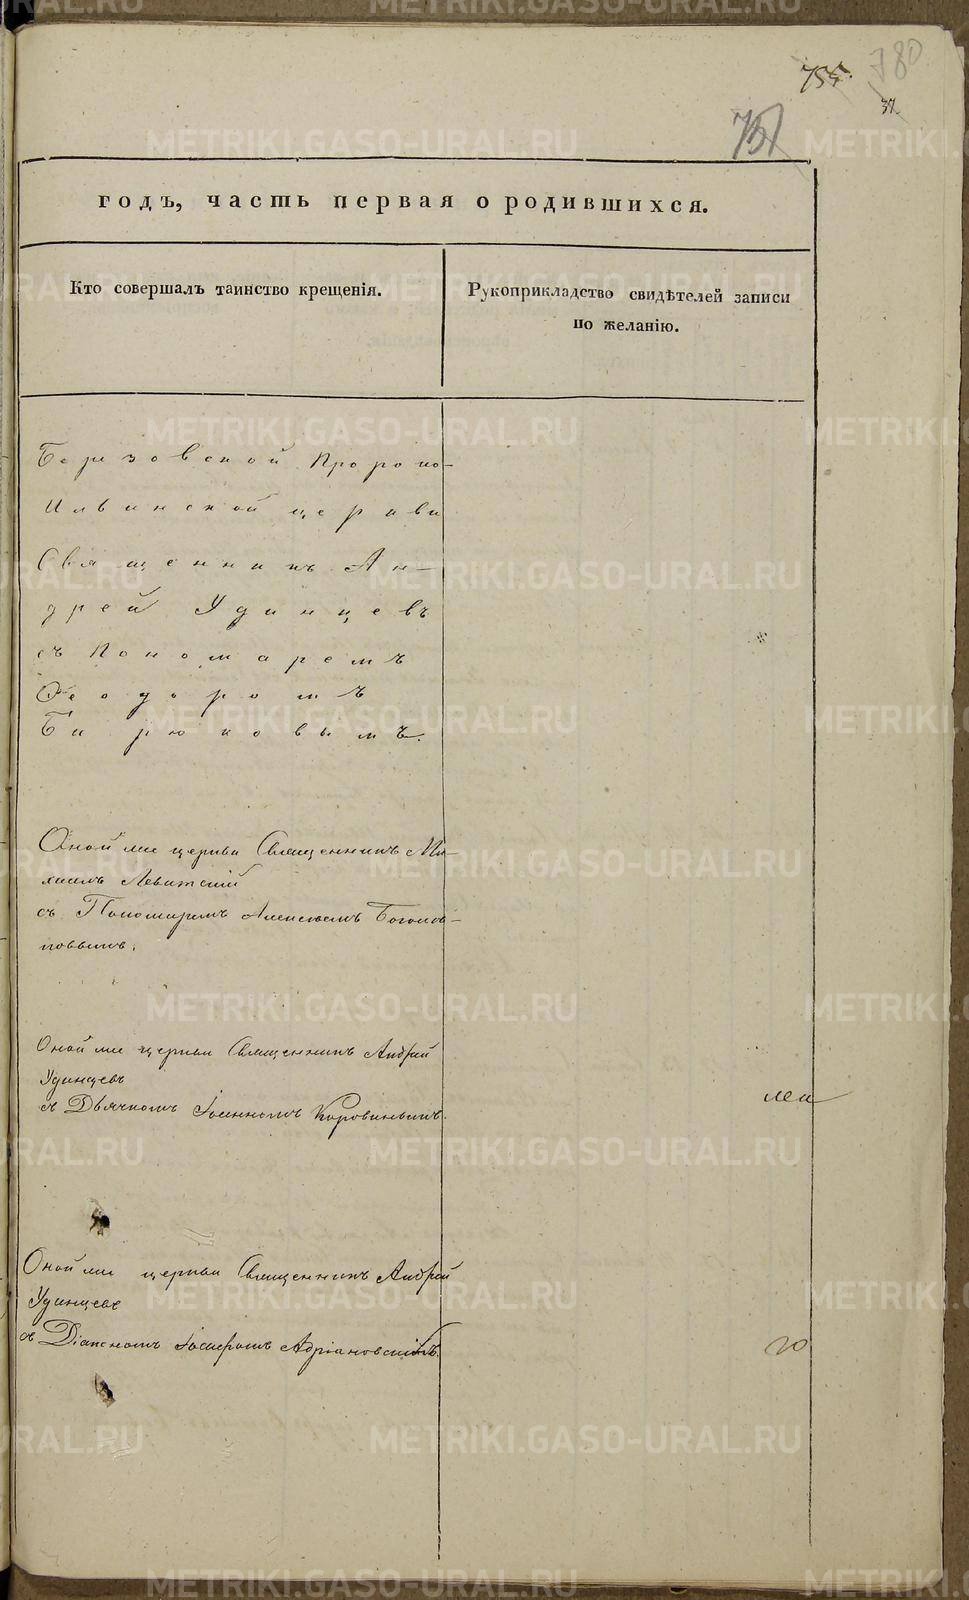 780
755.
37.
737
годъ, часть первая о родившихся.
Кто совершалъ таинство крещенія.
Рукоприкладство свидѣтелей записи
по желанію.
Березовской Пророко-
Ильинской церкви
Священникъ Ан-
дрей Удинцевъ
съ Пономаремъ
Ѳеодоромъ
Бирюковымъ.
Оной же церкви Священникъ Ми-
хаилъ Левитскій
съ Пономаремъ Алексѣемъ Богомо-
ловымъ.
Оной же церкви Священникъ Андрей
Удинцевъ
съ Дьячкомъ Іоанномъ Коровинымъ.
Оной же церкви Священникъ Андрей
Удинцевъ
съ Діакономъ Іосифомъ Адріановскимъ.
METRIKI.GASO-URAL.RU